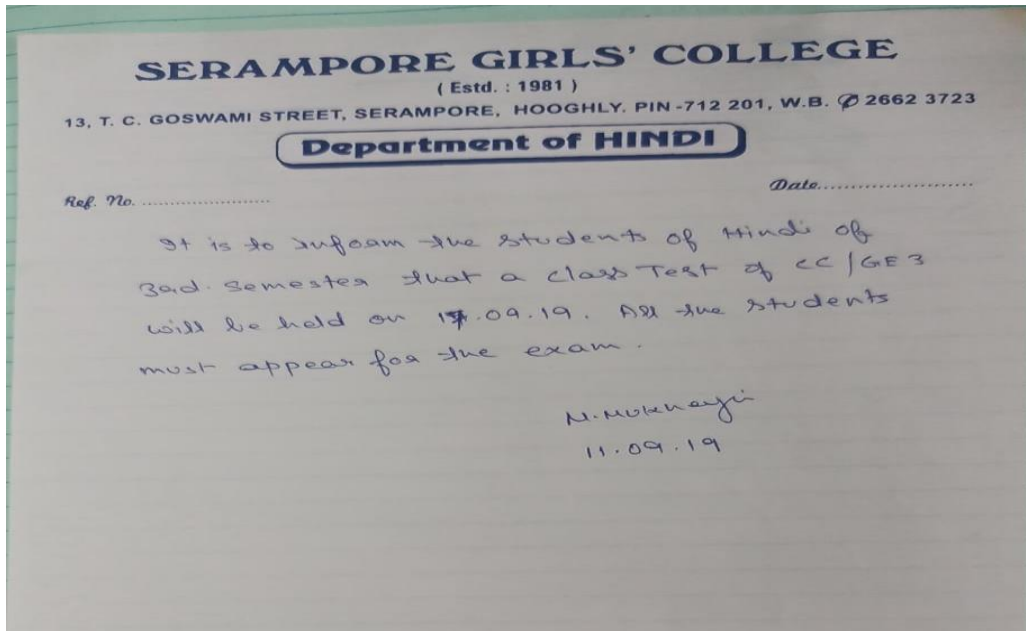 SERAMPORE GIRLS' COLLEGE
( Estd. : 1981 )
13, T. C. GOSWAMI STREET, SERAMPORE, HOOGHLY. PIN -712 201, W.B. ✆ 2662 3723
Department of HINDI
Ref. No. ........................
Date..........................
It is to inform the students of Hindi of
3rd. semester that a class Test of CC/GE3
will be held on .09.19. All the students
must appear for the exam.
M. Mukherjee
11.09.19